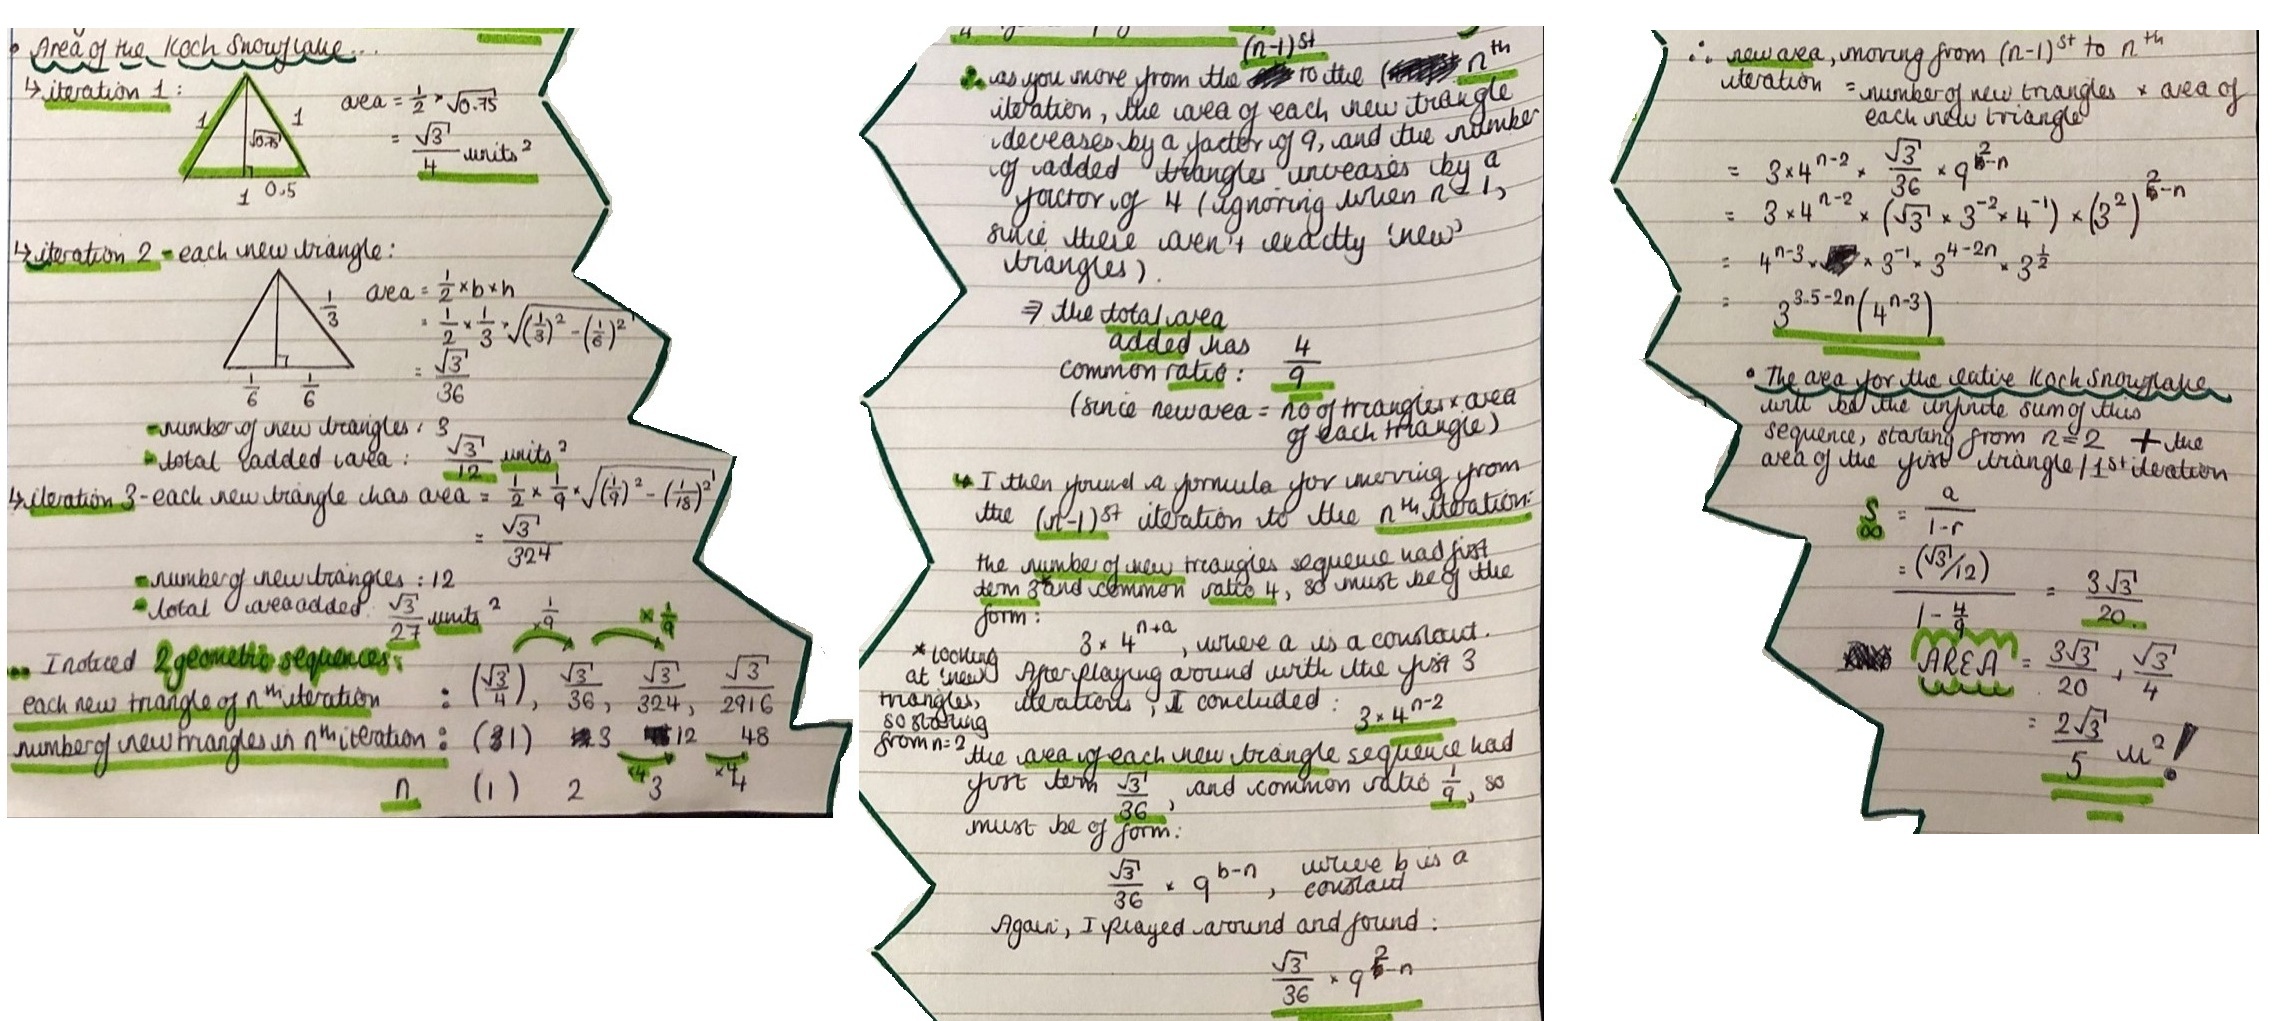 • Area of the Koch Snowflake...
↳ iteration 1:
1 1 √0.75
1 0.5
area = 1/2 × √0.75
= √3/4 units²
↳ iteration 2 - each new triangle:
1/3
1/6 1/6
area = 1/2 × b × h
= 1/2 × 1/3 × √((1/3)² - (1/6)²)
= √3/36
- number of new triangles: 3
- total added area: √3/12 units²
↳ iteration 3 - each new triangle has area = 1/2 × 1/9 × √((1/9)² - (1/18)²)
= √3/324
- number of new triangles: 12
- total area added: √3/27 units²
×1/9 ×1/9
•• I noticed 2 geometric sequences:
each new triangle of nth iteration : (√3/4), √3/36, √3/324, √3/2916
number of new triangles in nth iteration : (1) 3 12 48
×4 ×4
n (1) 2 3 4
(n-1)st
as you move from the to the ( nth
iteration, the area of each new triangle
decreases by a factor of 9, and the number
of added triangles increases by a
factor of 4 (ignoring when n = 1,
since there aren't exactly 'new'
triangles).
⇒ the total area
added has
common ratio: 4/9
(since new area = no of triangles × area
of each triangle)
↳ I then found a formula for moving from
the (n-1)st iteration to the nth iteration:
the number of new triangles sequence had first
term 3* and common ratio 4, so must be of the
form:
3 × 4^(n+a), where a is a constant.
* looking
at 'new'
triangles,
so starting
from n=2
After playing around with the first 3
iterations, I concluded: 3 × 4^(n-2)
the area of each new triangle sequence had
first term √3/36, and common ratio 1/9, so
must be of form:
√3/36 × 9^(b-n), where b is a
constant
Again, I played around and found:
√3/36 × 9^(2-n)
∴ new area, moving from (n-1)st to nth
iteration = number of new triangles × area of
each new triangle
= 3×4^(n-2) × √3/36 × 9^(2-n)
= 3×4^(n-2) × (√3 × 3^-2 × 4^-1) × (3²)^(2-n)
= 4^(n-3) × × 3^-1 × 3^(4-2n) × 3^(1/2)
= 3^(3.5-2n) (4^(n-3))
• The area for the entire Koch Snowflake
will be the infinite sum of this
sequence, starting from n=2 + the
area of the first triangle/1st iteration
S∞ = a/(1-r)
= (√3/12)/(1 - 4/9) = 3√3/20
AREA = 3√3/20 + √3/4
= 2√3/5 u²!